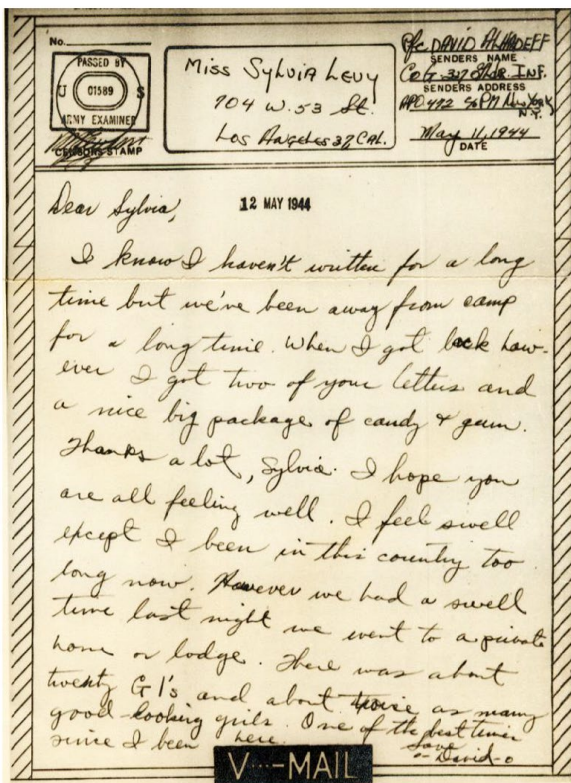 No.
PASSED BY
U 01589 S
ARMY EXAMINER
CENSOR'S STAMP
Miss Sylvia Levy
704 W. 53 St.
Los Angeles 37 Cal.
Pfc DAVID ALHADEFF
SENDERS NAME
Co G INF.
SENDERS ADDRESS
APO 472 % PM New York
N.Y.
May 11, 1944
DATE
12 MAY 1944
Dear Sylvia,
I know I haven't written for a long
time but we've been away from camp
for a long time. When I got back how-
ever I got two of your letters and
a nice big package of candy & gum.
Thanks a lot, Sylvia. I hope you
are all feeling well. I feel swell
except I been in this country too
long now. However we had a swell
time last night we went to a private
home or lodge. There was about
twenty GI's and about twice as many
good-looking girls. One of the best times
since I been here.
Love
David
V···-MAIL